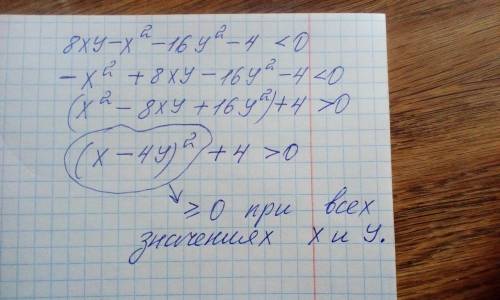 8xy - x² - 16y² - 4 < 0
- x² + 8xy - 16y² - 4 < 0
(x² - 8xy + 16y²) + 4 > 0
(x - 4y)² + 4 > 0
≥ 0 при всех
значениях x и y.